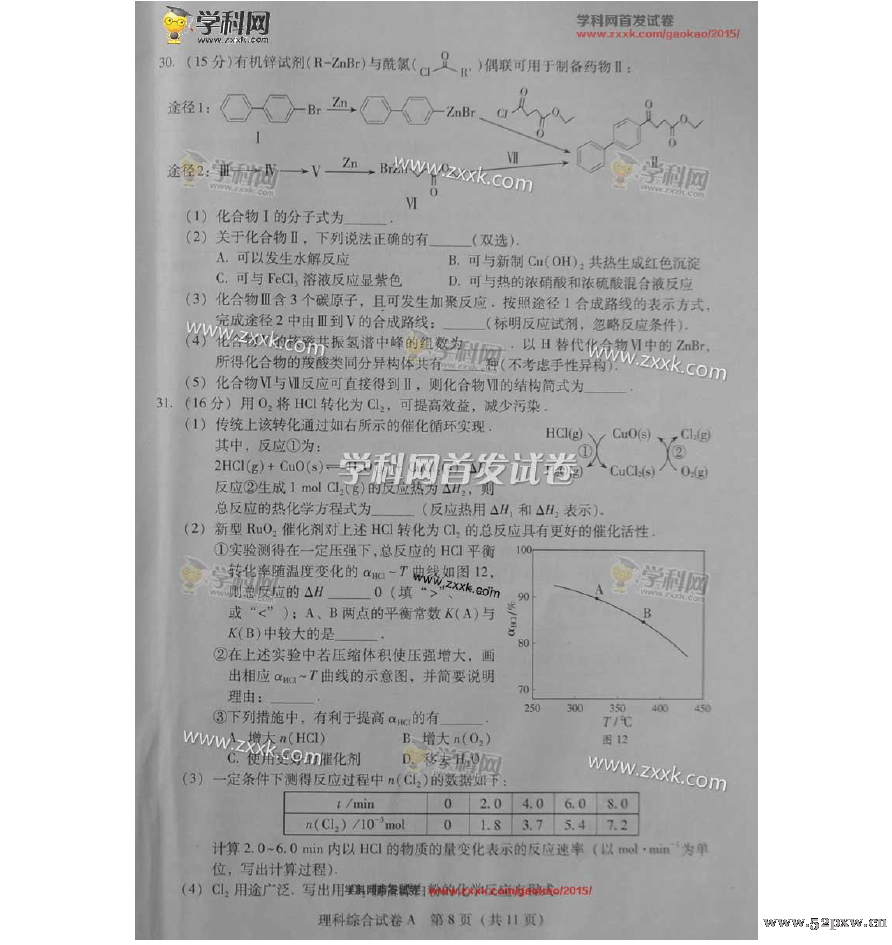 学科网
www.zxxk.com
学科网首发试卷
www.zxxk.com/gaokao/2015/
30. (15 分)有机锌试剂(R-ZnBr)与酰氯( Cl O R' )偶联可用于制备药物Ⅱ:
途径1: Br Zn ZnBr Cl O O O
Ⅰ Ⅱ
途径2: Ⅲ Ⅳ Ⅴ Zn BrZn O O Ⅶ
Ⅵ
(1) 化合物Ⅰ的分子式为______.
(2) 关于化合物Ⅱ,下列说法正确的有______(双选).
A. 可以发生水解反应
B. 可与新制 Cu(OH)₂ 共热生成红色沉淀
C. 可与 FeCl₃ 溶液反应显紫色
D. 可与热的浓硝酸和浓硫酸混合液反应
(3) 化合物Ⅲ含 3 个碳原子,且可发生加聚反应.按照途径 1 合成路线的表示方式,
完成途径 2 中由Ⅲ到Ⅴ的合成路线:______(标明反应试剂,忽略反应条件).
(4) 核磁共振氢谱中峰的组数为______.以 H 替代化合物Ⅵ中的 ZnBr,
所得化合物的羧酸类同分异构体共有______种(不考虑手性异构).
(5) 化合物Ⅵ与Ⅶ反应可直接得到Ⅱ,则化合物Ⅶ的结构简式为______.
31. (16 分) 用 O₂ 将 HCl 转化为 Cl₂,可提高效益,减少污染.
(1) 传统上该转化通过如右所示的催化循环实现.
其中,反应①为:
2HCl(g) + CuO(s) ⇌
反应②生成 1 mol Cl₂(g)的反应热为 ΔH₂,则
总反应的热化学方程式为______(反应热用 ΔH₁ 和 ΔH₂ 表示)。
HCl(g) CuO(s) Cl₂(g)
① ②
CuCl₂(s) O₂(g)
(2) 新型 RuO₂ 催化剂对上述 HCl 转化为 Cl₂ 的总反应具有更好的催化活性.
①实验测得在一定压强下,总反应的 HCl 平衡
转化率随温度变化的 αHCl ~ T 曲线如图 12,
则总反应的 ΔH ______ 0 (填 “>”、
或 “<”);A、B 两点的平衡常数 K(A)与
K(B)中较大的是______.
②在上述实验中若压缩体积使压强增大,画
出相应 αHCl ~ T 曲线的示意图,并简要说明
理由:______.
③下列措施中,有利于提高 αHCl的有______.
A. 增大 n(HCl)
B. 增大 n(O₂)
C. 使用 催化剂
D. 移去 H₂O
αHCl/%
100
90
80
70
A
B
250 300 350 400 450
T/℃
图 12
(3) 一定条件下测得反应过程中 n(Cl₂)的数据如下:
t/min 0 2.0 4.0 6.0 8.0
n(Cl₂) /10⁻³mol 0 1.8 3.7 5.4 7.2
计算 2.0~6.0 min 内以 HCl 的物质的量变化表示的反应速率(以 mol·min⁻¹为单
位,写出计算过程).
(4) Cl₂ 用途广泛.写出用 粉的化学反应方程式
学科网首发试卷 www.zxxk.com/gaokao/2015/
理科综合试卷 A 第 8 页(共 11 页)
www.52pxw.cn